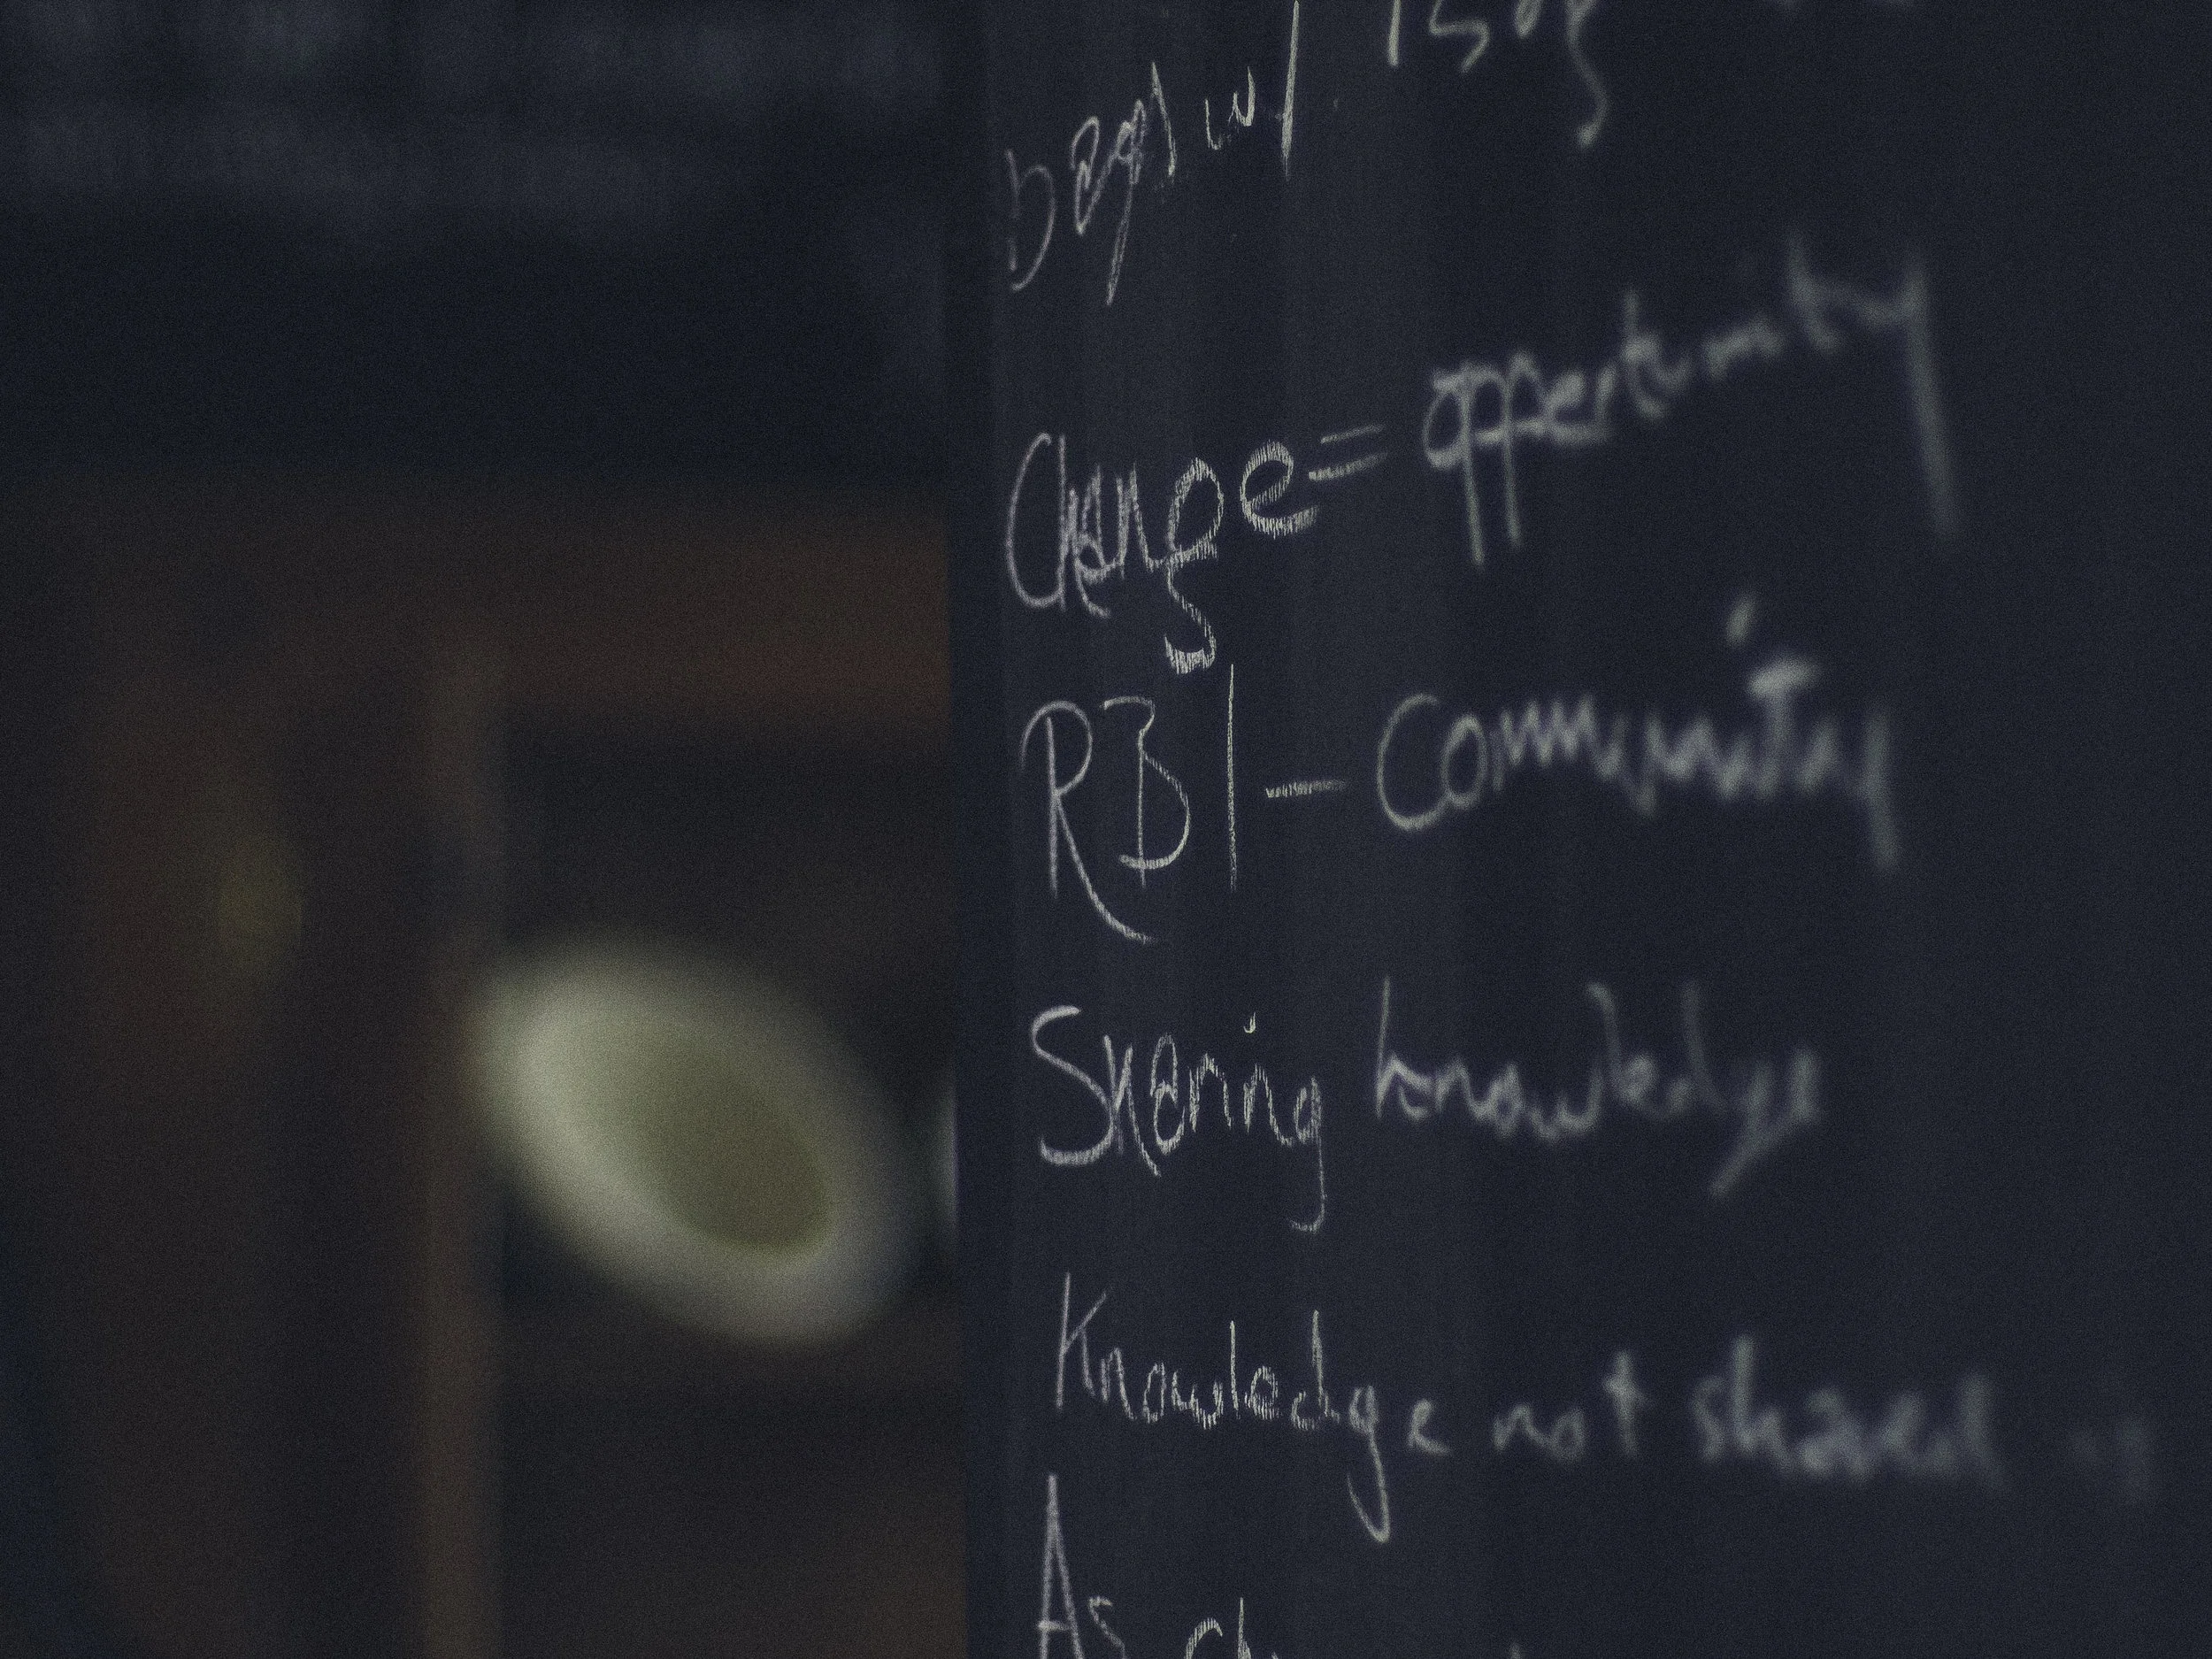 Change = oppertunity
RBI - Community
Sharing knowledge
Knowledge not shared
As